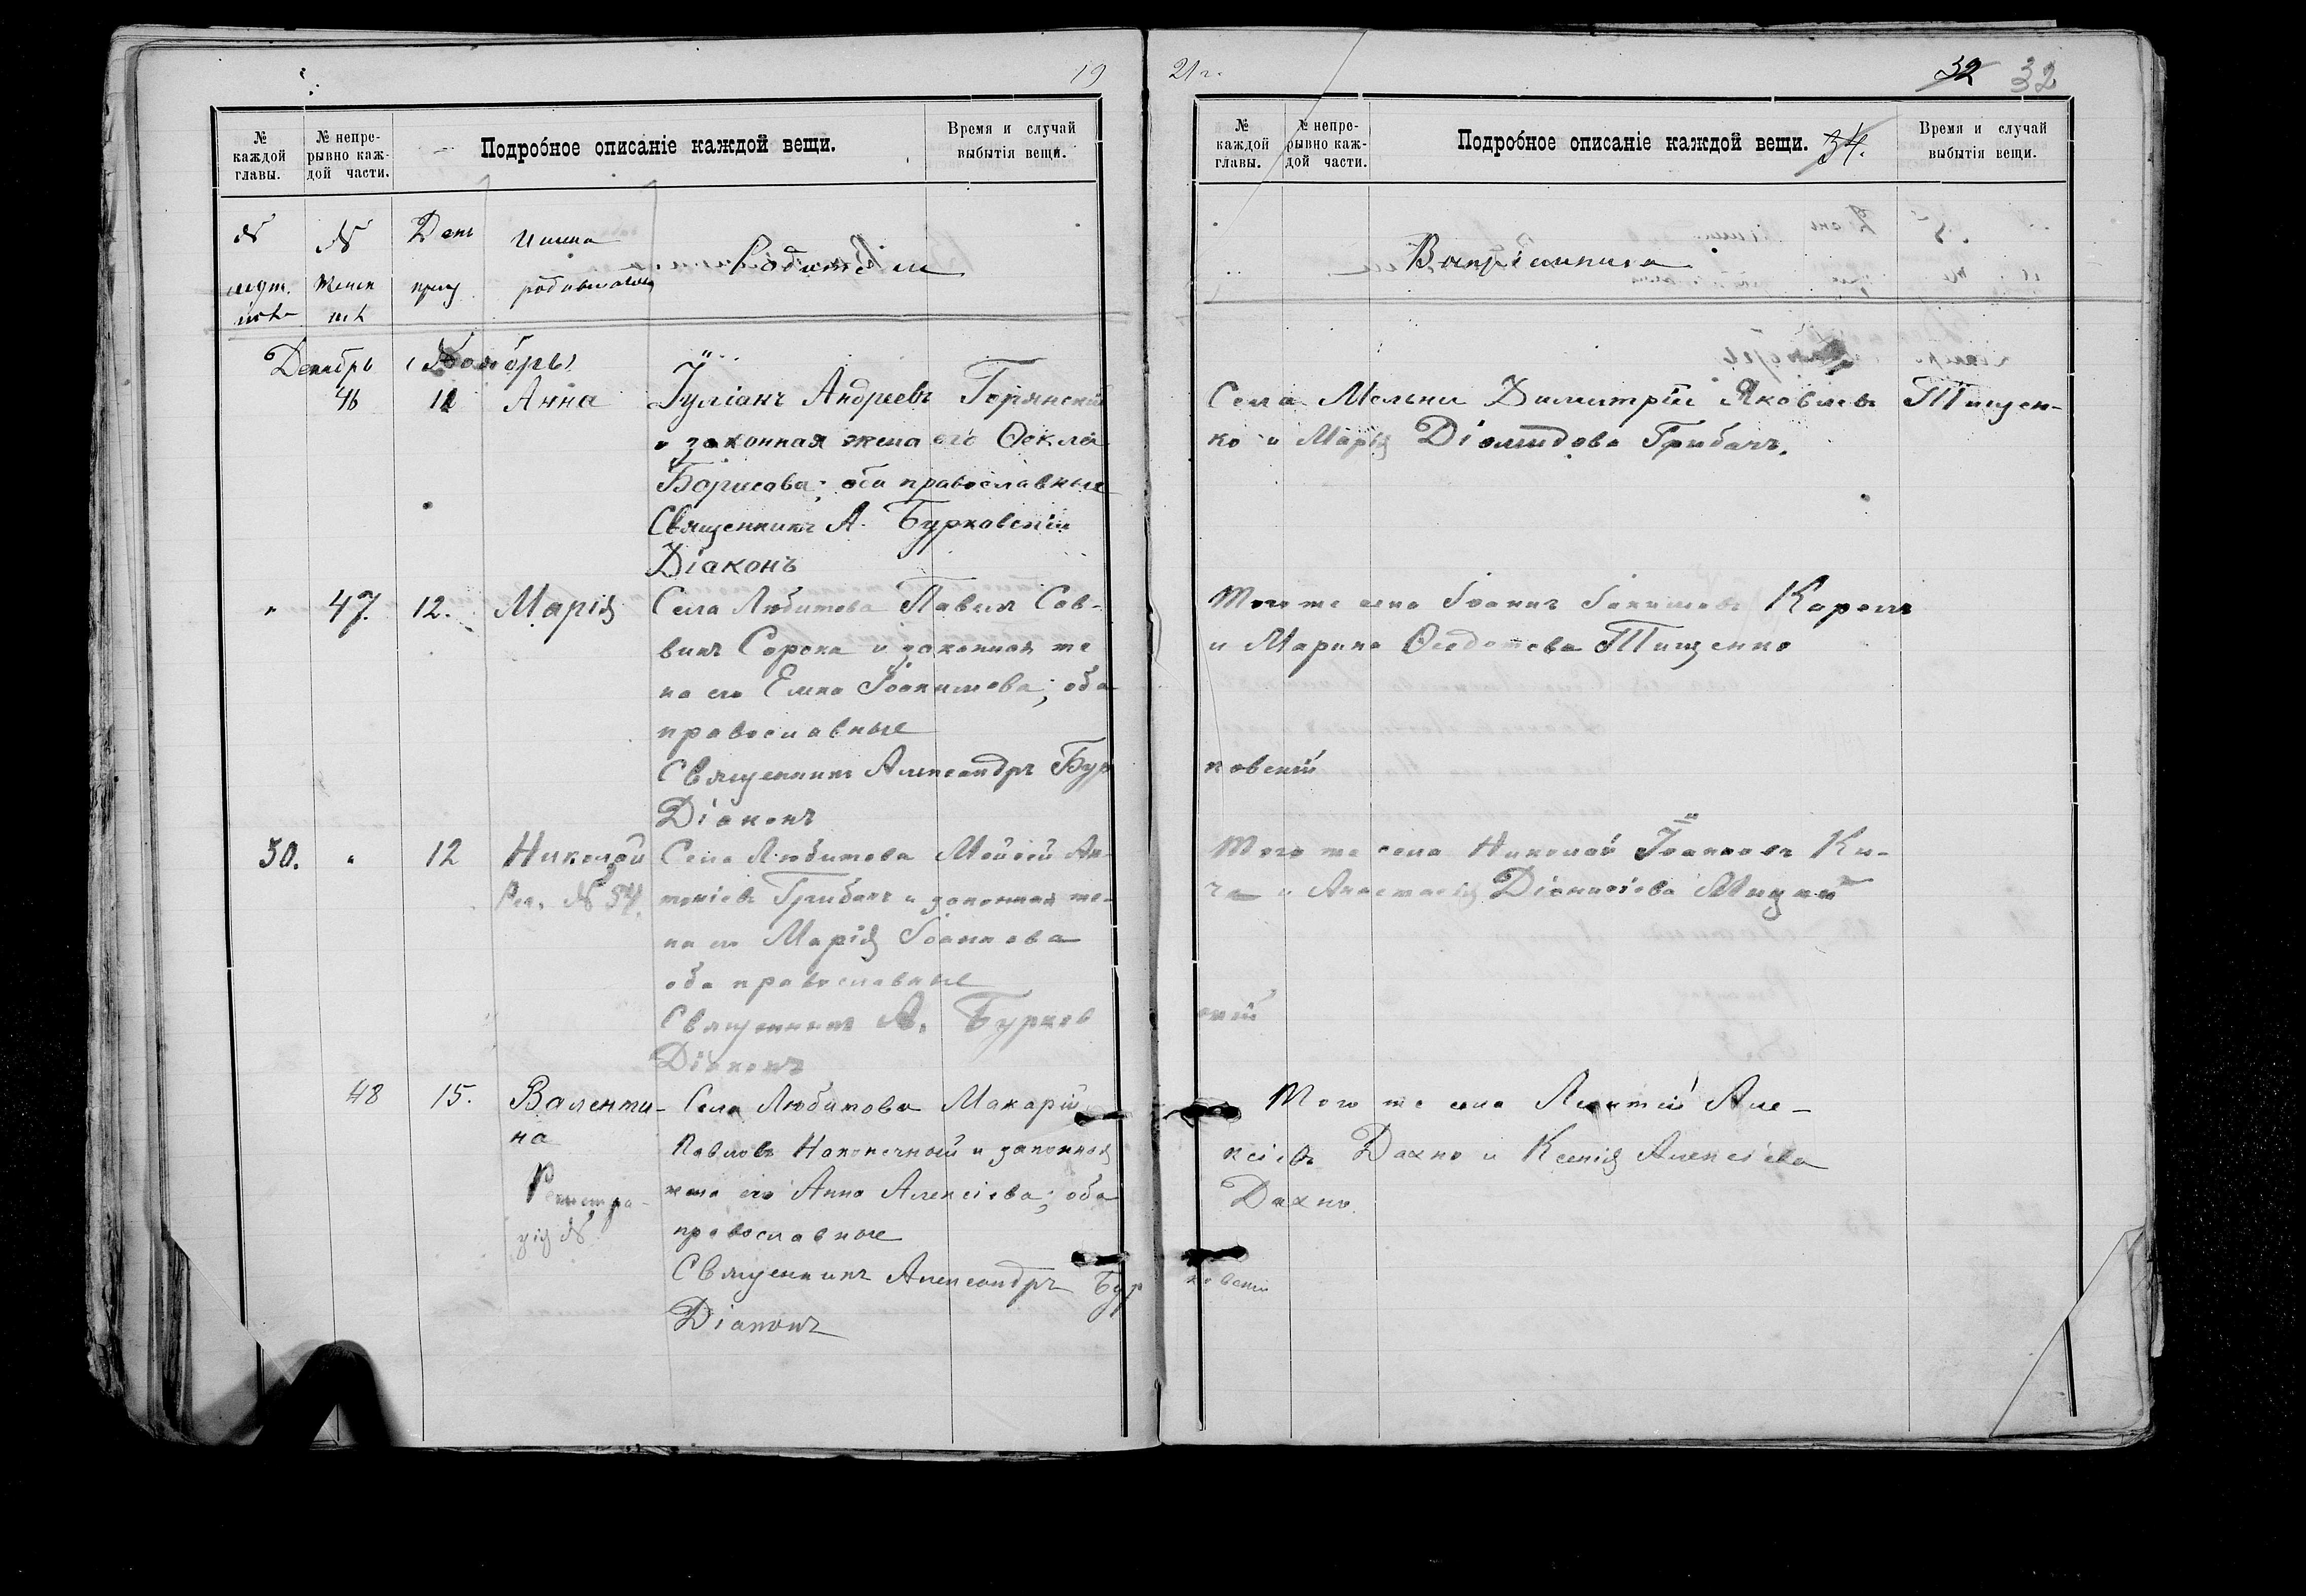 19
№ каждой главы.
№ непре-рывно каж-дой части.
Подробное описаніе каждой вещи.
Время и случай выбытія вещи.
№
№
День
Имена
Родители
женск
родившихся
Декабрь (Ноябрь)
46 12 Анна Іуліанъ Андреевъ Горянскій
и законная жена его Ѳекла
Борисова; оба православные
Священникъ А. Бурковскій
Діаконъ
" 47. 12. Марія Села Любитова Павелъ Сав-
винъ Сорока и законная же
на его Іоакимова; оба
православные
Священникъ Александръ Бур
Діаконъ
30. " 12 Николай Села Любитова Моисей Ан-
тоніевъ Грибанъ и законная же-
на его Марія Іоаннова
оба православные
Священникъ А. Бурков
Діаконъ
48 15. Валенти- Села Любитова Макарій
на Павловъ Наконечный и законная
жена его Анна Алексіева; оба
Регистра-
ція № православные
Священникъ Александръ Бур
Діаконъ
21 г.
32 32
№ каждой главы.
№ непре-рывно каж-дой части.
Подробное описаніе каждой вещи. 34.
Время и случай выбытія вещи.
Воспріемники
Села Мельни Димитрій Яковлевъ Тищен-
ко и Марія Діомидова Грибанъ.
Того же села Іоаннъ Іоакимовъ
и Марина Ѳедотова Тищенко
ковскій
Того же села Николай Іоанновъ Ки-
и Анастасія Діонисіева
скій
Того же села Леонтій Але-
ксіевъ Дахно и Ксенія Алексіева
Дахно
ковскій